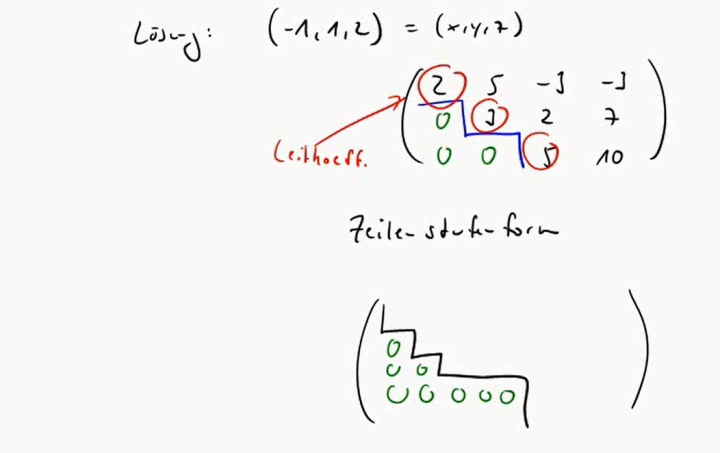 Lösung: (-1, 1, 2) = (x, y, z)
2 5 -3 -3
0 3 2 7
Leitkoeff. 0 0 5 10
Zeilenstufenform
0
0 0
0 0 0 0 0